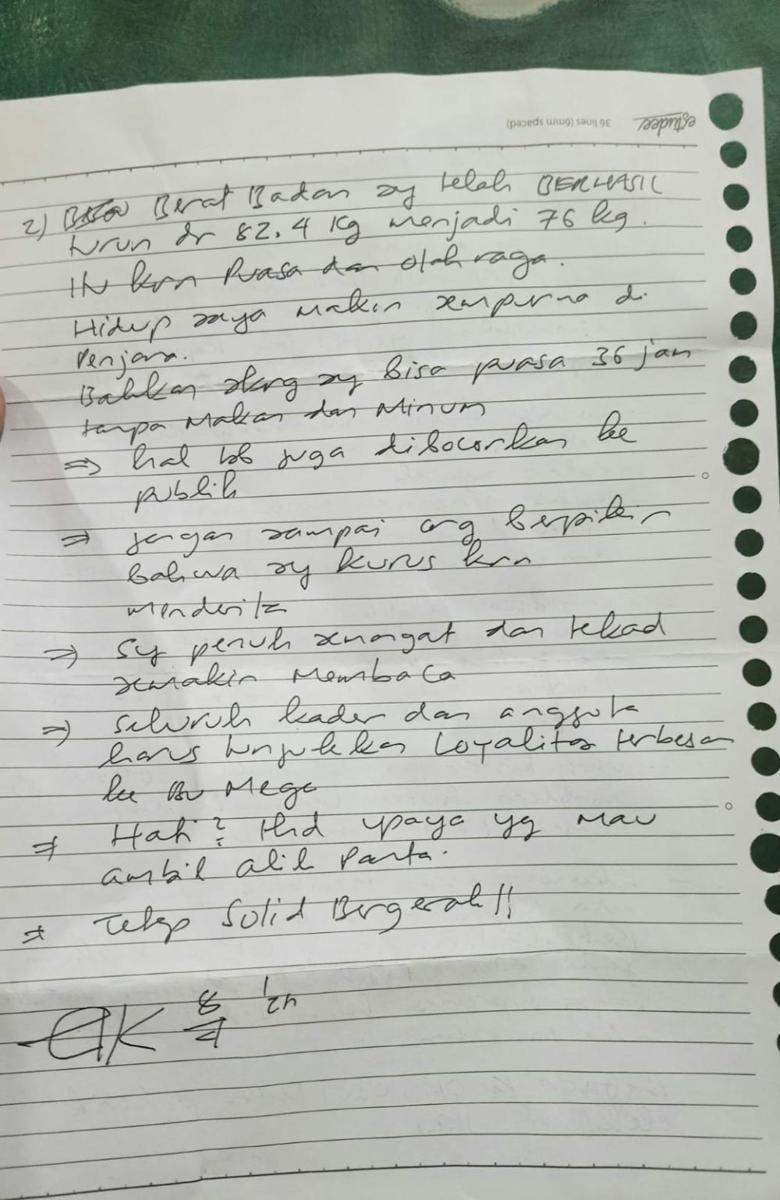 estudee 36 lines (6mm spaced)
2) Berat Badan sy telah BERHASIL
turun dr 82.4 kg menjadi 76 kg.
Itu krn Puasa dan olah raga.
Hidup saya makin sempurna di
Penjara.
Bahkan skrg sy bisa puasa 36 jam
tanpa Makan dan Minum
⇒ hal bb juga dibocorkan ke
publik
⇒ jangan sampai org berpikir
bahwa sy kurus krn
menderita
⇒ Sy penuh semangat dan tekad
semakin Membaca
⇒ Seluruh kader dan anggota
harus tunjukkan Loyalitas terbesar
ke Bu Mega
⇒ Hati2 thd upaya yg mau
ambil alih Partai.
⇒ Tetap Solid Bergerak!!